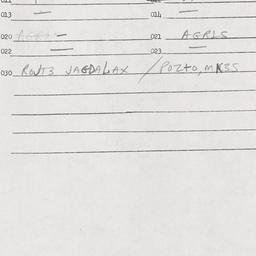 013 — 014 —
020 — 021 AGRLS
022 — 023 —
030 ROUT3 JAGDALAX / POZTO, MK3S